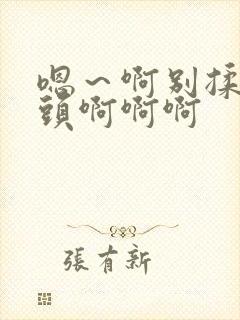 嗯～啊别揉
頭啊啊啊
張有新